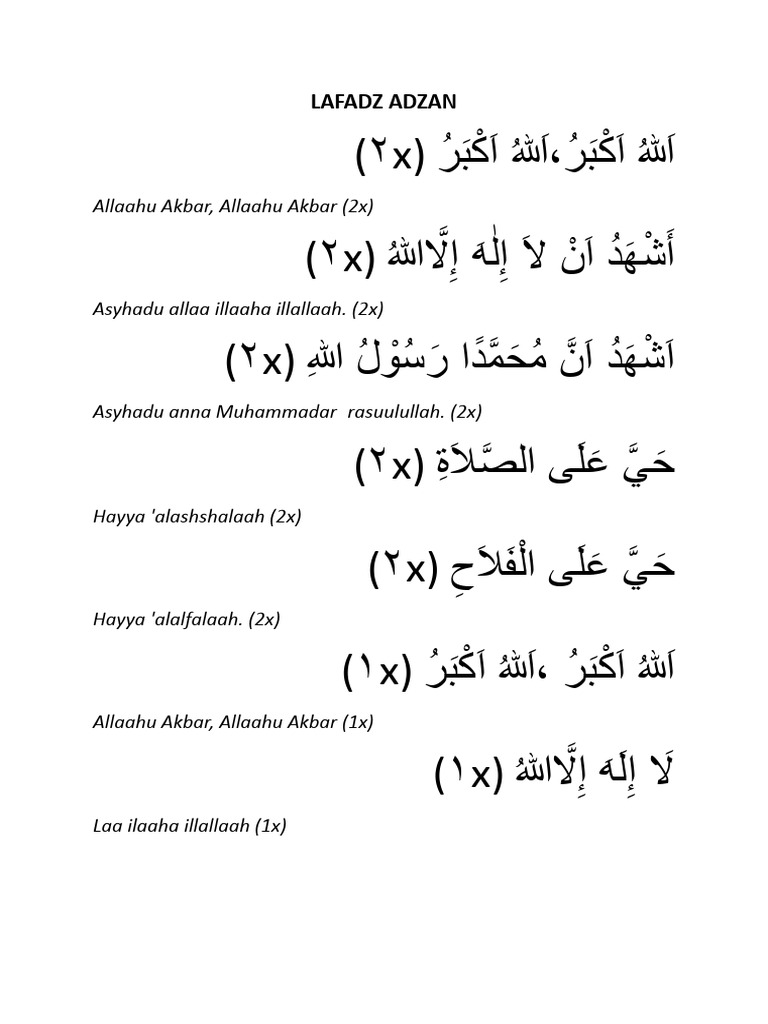 LAFADZ ADZAN
اَللهُ اَكْبَرُ،اَللهُ اَكْبَرُ (٢x)
Allaahu Akbar, Allaahu Akbar (2x)
أَشْهَدُ اَنْ لاَ إِلٰهَ إِلَّااللهُ (٢x)
Asyhadu allaa illaaha illallaah. (2x)
اَشْهَدُ اَنَّ مُحَمَّدًا رَسُوْلُ اللهِ (٢x)
Asyhadu anna Muhammadar  rasuulullah. (2x)
حَيَّ عَلَى الصَّلاَةِ (٢x)
Hayya 'alashshalaah (2x)
حَيَّ عَلَى الْفَلاَحِ (٢x)
Hayya 'alalfalaah. (2x)
اَللهُ اَكْبَرُ ،اَللهُ اَكْبَرُ (١x)
Allaahu Akbar, Allaahu Akbar (1x)
لَا إِلَهَ إِلَّااللهُ (١x)
Laa ilaaha illallaah (1x)